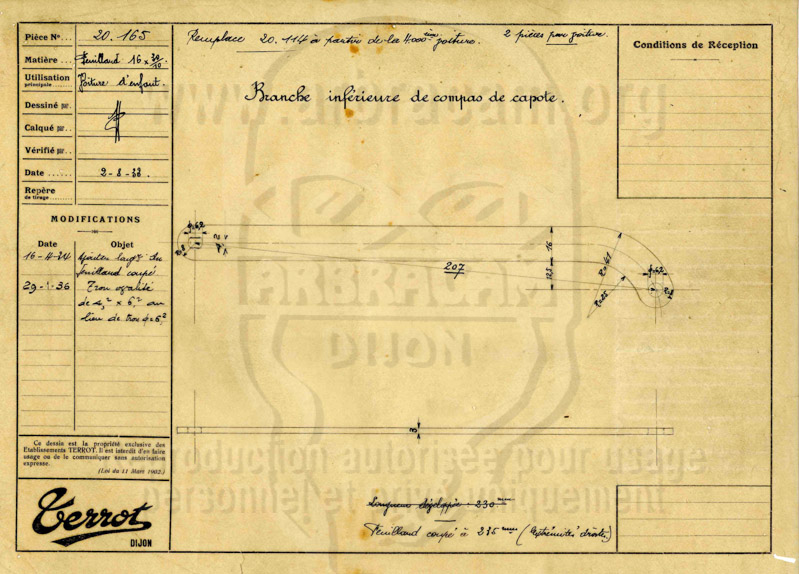 Pièce N° 20.165
Matière Feuillard 16 x 30/10
Utilisation
principale Voiture d'enfant.
Dessiné par
Calqué par
Vérifié par
Date 2-8-33.
Repère
de tirage
MODIFICATIONS
Date Objet
16-4-34 Ajouter largr du
feuillard coupé
29-1-36 Trou ovalité
de x 6,2 au
lieu de trou ϕ 6,2
Ce dessin est la propriété exclusive des
Etablissements TERROT. Il est interdit d'en faire
usage ou de le communiquer sans autorisation
expresse.
(Loi du 11 Mars 1902.)
Terrot
DIJON
Remplace 20.114 à partir de la 4000ième voiture. 2 pièces par voiture.
Branche inférieure de compas de capote.
Conditions de Réception
ϕ 6,2
R=8
207
16
12,5
R=41
R=25
ϕ 6,2
3
Longueur développée : 230 mm
Feuillard coupé à 235 mm (extrémités droites)
www.arbracam.org
ARBRACAM
DIJON
production autorisée pour usage
personnel et uniquement